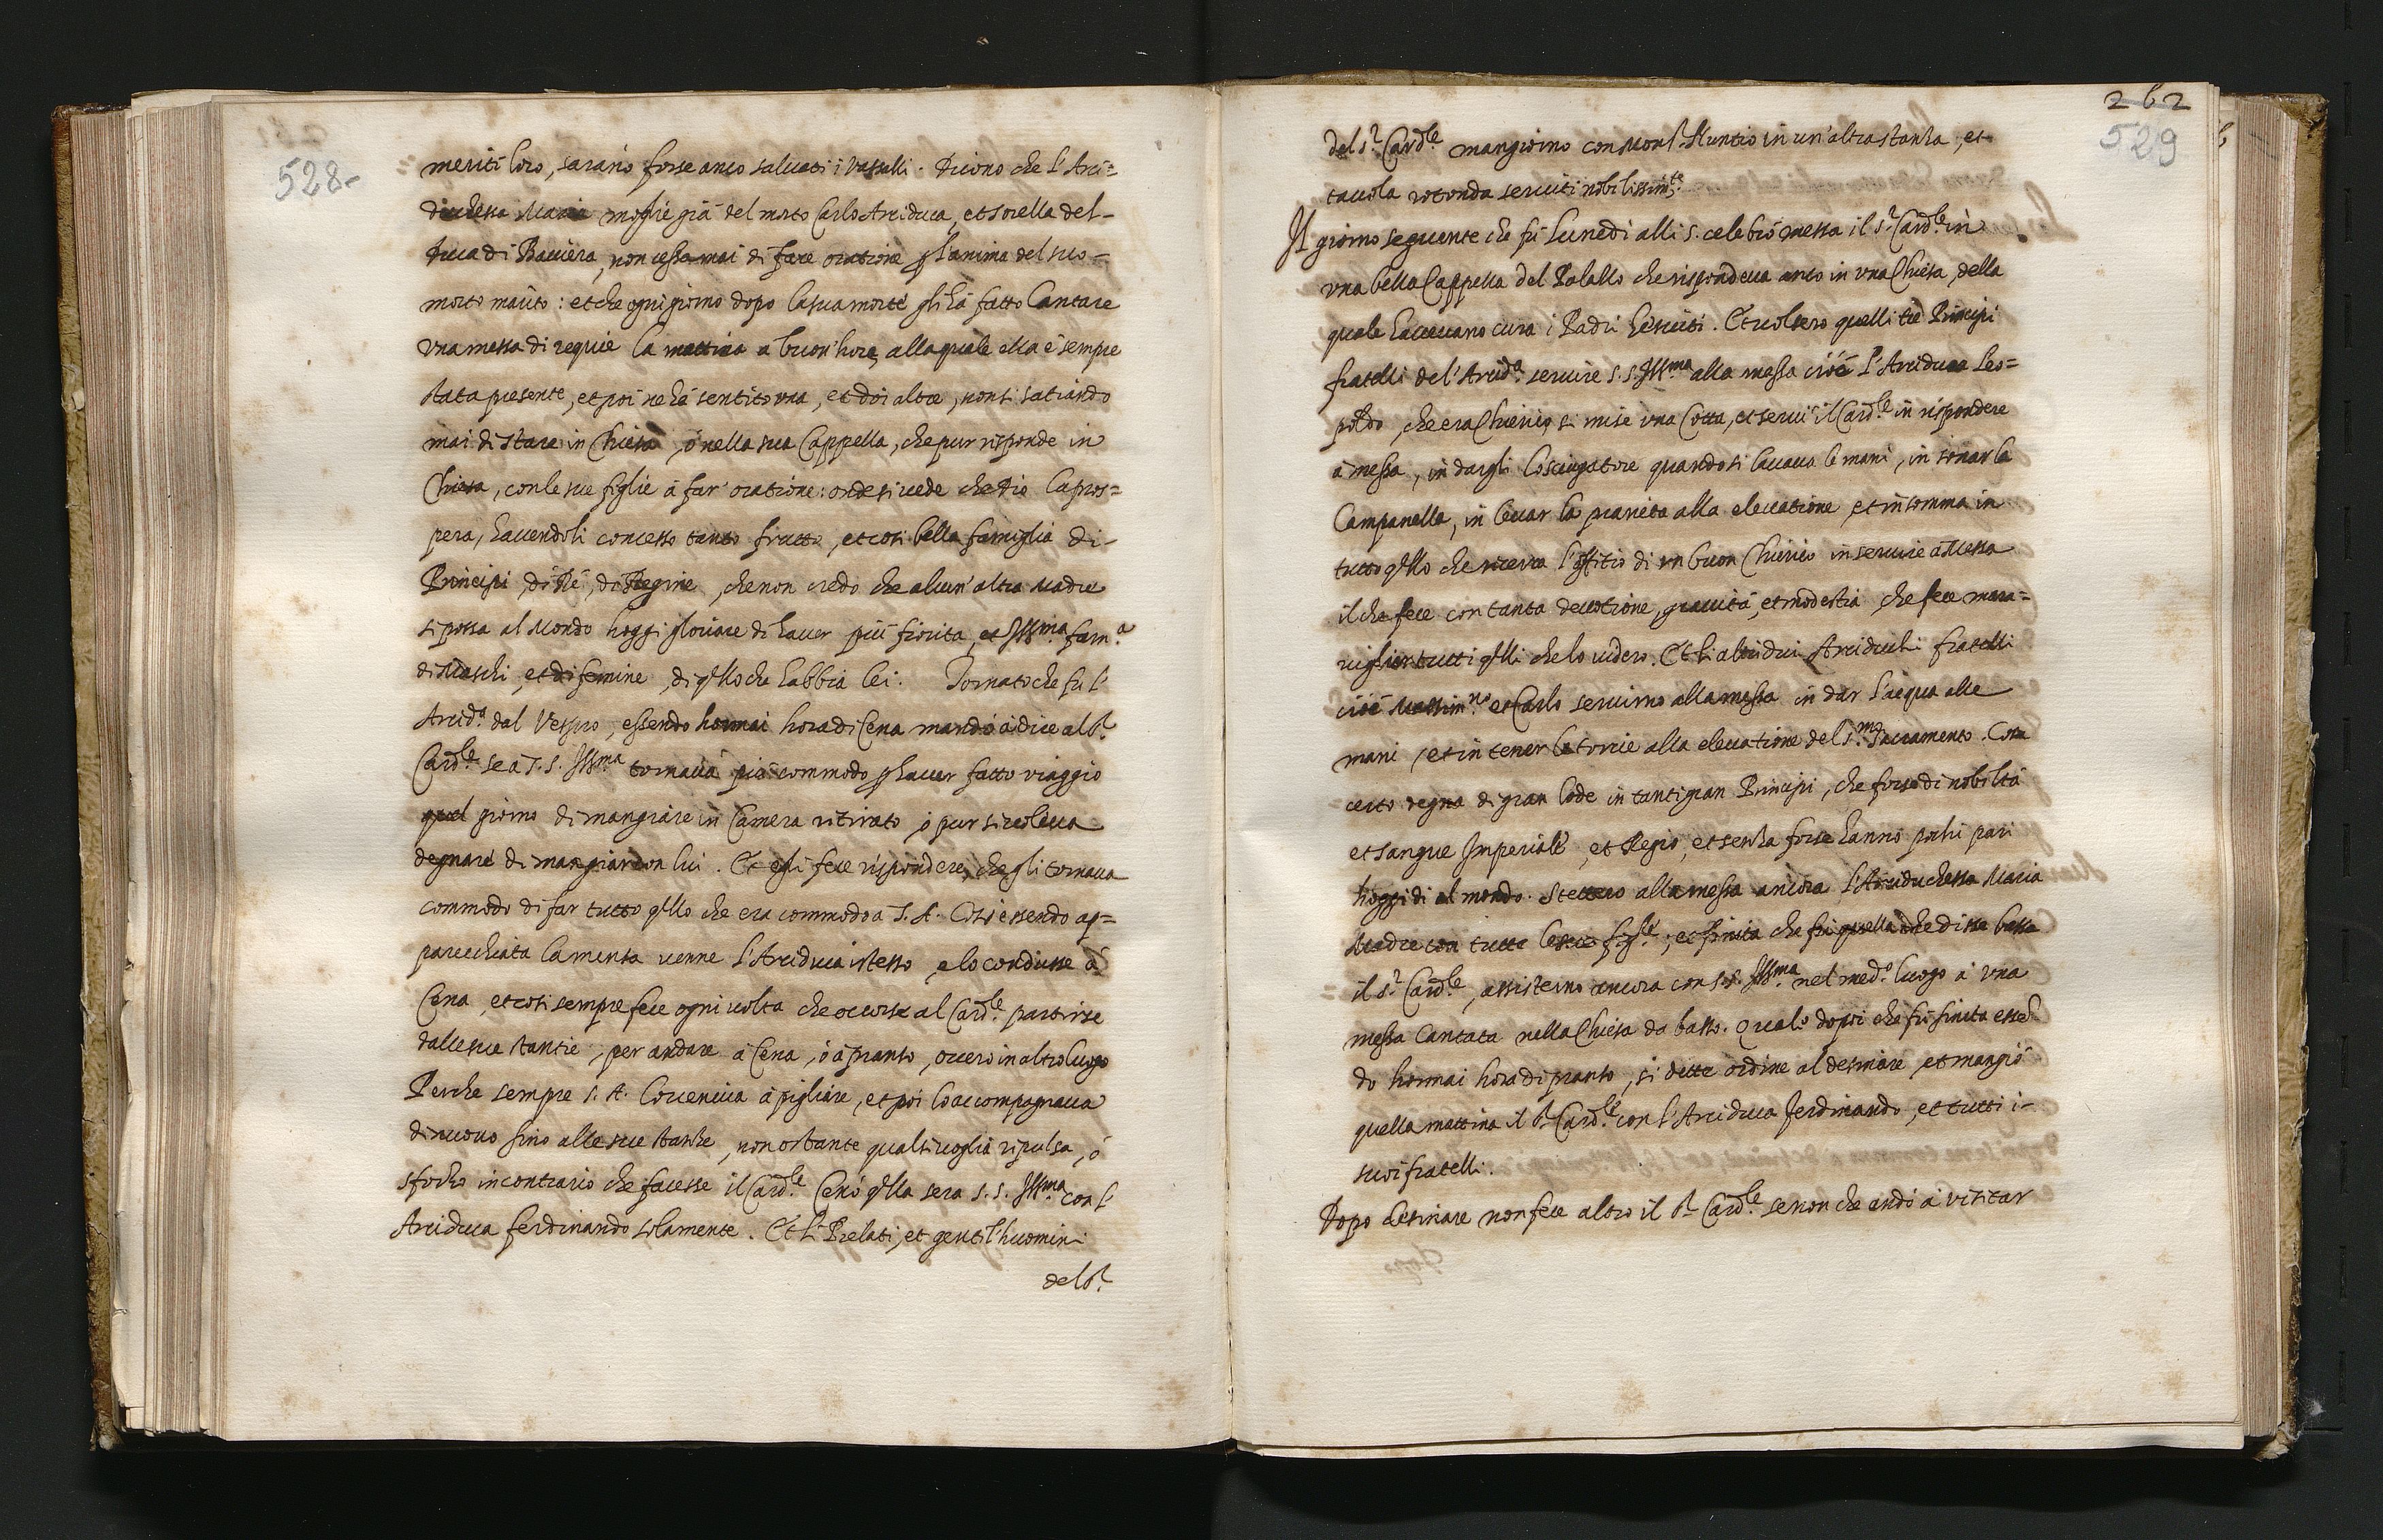 528-
meriti loro, sarāno forse anco saluati i vassalli. Dicono che l'Arci=
duchessa Maria moglie già del morto Carlo Arciduca, et sorella del-
Duca di Baviera, non cessa mai di fare oratione ꝑ l'anima del suo-
morto marito: et che ogni giorno dopo la sua morte gli hà fatto Cantare
vna messa di requie la mattina a buon'hora, alla quale ella è sempre
stata presente, et poi ne hà sentito vna, et doi altre, non si satiando
mai di stare in Chiesa, ò nella sua Cappella, che pur risponde in
Chiesa, con le sue figlie à far' oratione: onde si vede che Dio la pros=
pera, hauendoli concesso tanto frutto, et cosi bella famiglia di-
Principi, di Rè, di Regine, che non credo che alcun'altra Madre
si possa al Mondo hoggi gloriare di hauer più fiorita, et Ill.ma fam.a
di Maschi, et di femine, di q̃llo che habbia lei. Tornato che fu l'
Arcid.a dal Vespro, essendo hormai hora di Cena mandò à dire al S.r
Card.le se à S. S. Ill.ma tornaua più commodo ꝑ hauer fatto viaggio
quel giorno di mangiare in Camera ritirato, ò pur si uoleua
degnare di mangiar con lui. Et egli fece rispondere, che gli tornaua
commodo di far tutto q̃llo che era commodo à S. A. Cosi essendo ap=
parecchiata la mensa uenne l'Arciduca istesso, e lo condusse à
Cena, et cosi sempre fece ogni uolta che occorse al Card.le partirse
dalle sue stantie, per andare à Cena, ò à pranso, ouero in altro luogo
Perche sempre S. A. lo ueniua à pigliare, et poi lo accompagnaua
di nuouo fino alle sue stanze, non ostante qualsiuoglia ripulsa, ò
sforzo in contrario che facesse il Card.le Cenò q̃lla sera S. S. Ill.ma con l'
Arciduca Ferdinando solamente. Et li Prelati, et gentil'huomini
del S.r
262
529
del S.r Card.le mangiorno con Mons.r Nuntio in un'altra stanza, et
tauola rotonda seruiti nobilissim.te
Il giorno seguente che fù Lunedì alli 5. celebrò messa il S.r Card.le in
vna bella Cappella del Palazzo che rispondeua anco in vna Chiesa, della
quale haueuano cura i Padri Gesuiti. Et uolsero quelli trè Principi
fratelli de l'Arcid.a seruire S. S. Ill.ma alla messa cioè l'Arciduca Leo=
poldo, che era Chierico, si mise vna Cotta, et seruì il Card.le in rispondere
à messa, in dargli l'osciugatore quando si lauaua le mani, in sonar la
Campanella, in leuar la pianeta alla eleuatione, et in somma in
tutto q̃llo che ricerca l'offitio di vn buon Chierico in seruire à Messa
il che fece con tanta deuotione, grauità, et modestia, che fece mara=
uigliar tutti q̃lli che lo uidero. Et li altri dui Arciduchi fratelli
cioè Massim.no et Carlo seruirno alla messa in dar l'acqua alle
mani, et in tener le torcie alla eleuatione del S.mo Sacramento. Cosa
certo degna di gran lode in tanti gran Principi, che forse di nobiltà
et sangue Imperiale, et Regio, et senza forse hanno pochi pari
hoggi di al mondo. Stettero alla messa ancora l'Arciduchessa Maria
Madre con tutte le sue figl.e; et finita che fù quella che disse bassa
il S.r Card.le, assisterno ancora con S. S. Ill.ma nel med.o luogo à vna
messa Cantata nella Chiesa da basso. Quale dopoi che fù finita essen̄-
do hormai hora di pranso, si dette ordine al desinare, et mangiò
quella mattina il S.r Card.le con l'Arciduca Ferdinando, et tutti i-
suoi fratelli.
Dopo desinare non fece altro il S.r Card.le se non che andò à visitar